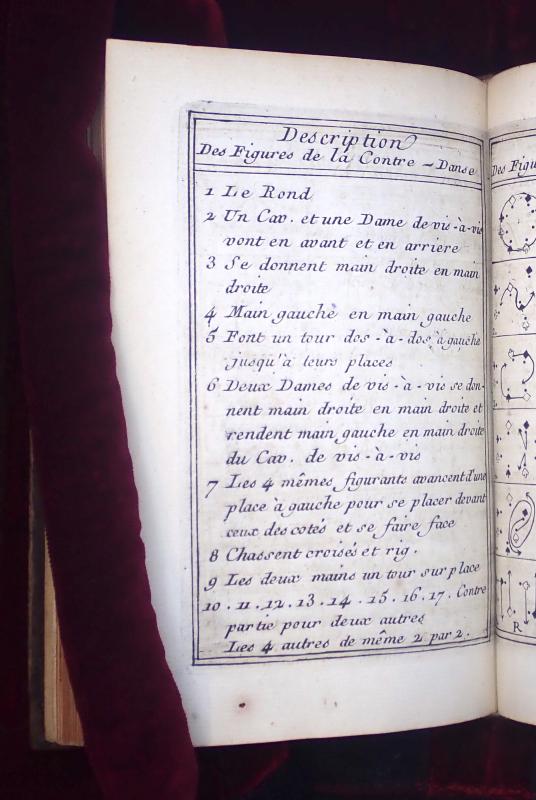 Description
Des Figures de la Contre - Danse
1 Le Rond
2 Un Cav. et une Dame de vis-à-vis
vont en avant et en arriere
3 Se donnent main droite en main
droite
4 Main gauche en main gauche
5 Font un tour dos - à - dos à gauche
jusqu'à leurs places
6 Deux Dames de vis - à - vis se don-
nent main droite en main droite et
rendent main gauche en main droite
du Cav. de vis - à - vis
7 Les 4 mêmes figurants avancent d'une
place à gauche pour se placer devant
ceux des cotés et se faire face
8 Chassent croisés et rig.
9 Les deux mains un tour sur place
10 . 11 . 12 . 13 . 14 . 15 . 16 . 17 . Contre
partie pour deux autres
Les 4 autres de même 2 par 2.
Des Figu
R